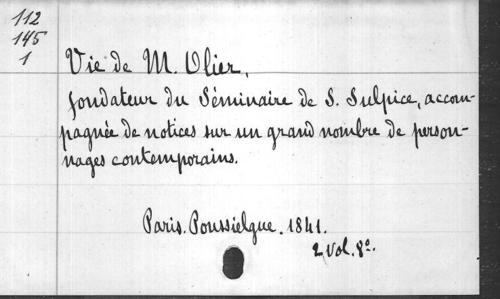 112
145
1
Vie de M. Olier,
fondateur du Séminaire de S. Sulpice, accom-
pagnée de notices sur un grand nombre de person-
nages contemporains.
Paris. Poussielgue. 1841.
2 vol. 8°.